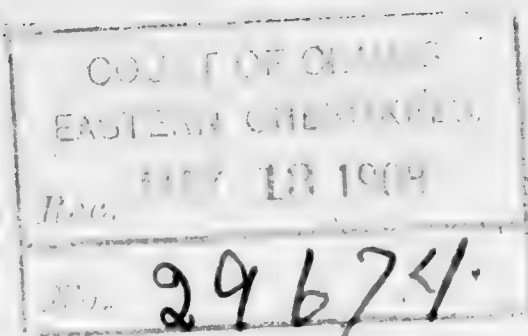 COURT OF CLAIMS
EASTERN CHEROKEES
18 1908
No. 29674.